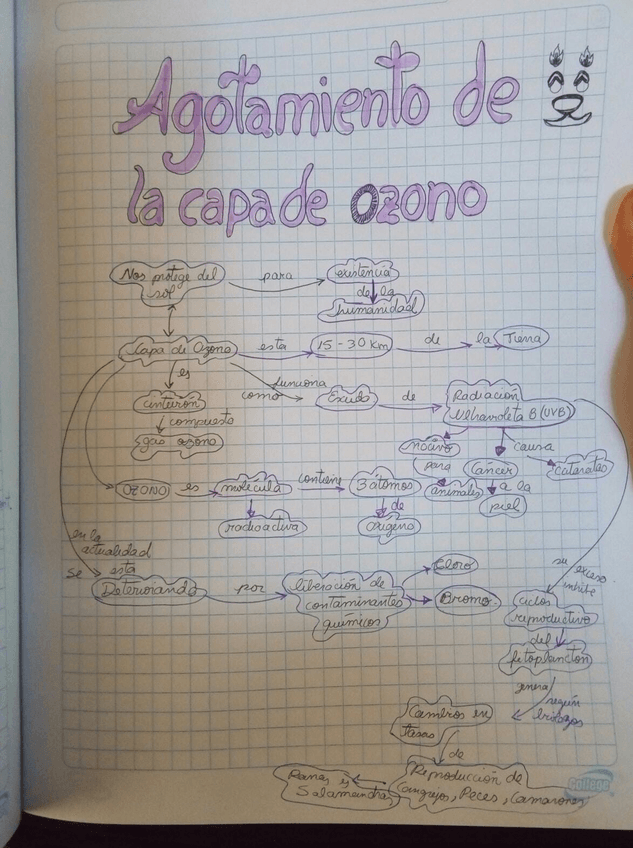 Agotamiento de
la capa de Ozono
Nos protege del
sol
para
existencia
de la
humanidad
Capa de Ozono
esta
15-30 Km
de
la
Tierra
es
funciona
como
Escudo
de
Radiación
Ultravioleta B (UVB)
cinturón
compuesto
gas ozono
nocivo
para
animales
causa
Cáncer
a la
piel
cataratas
OZONO
es
molécula
contiene
3 átomos
radioactiva
de
oxigeno
en la
actualidad
se
esta
Deteriorando
por
liberación de
contaminantes
químicos
Cloro
Bromo
su exceso
inhibe
ciclos
reproductivo
del
fitoplancton
genera
según
Cambios en
tasas
de
Reproducción de
Cangrejos, Peces, Camarones
Ranas y
Salamandras
College